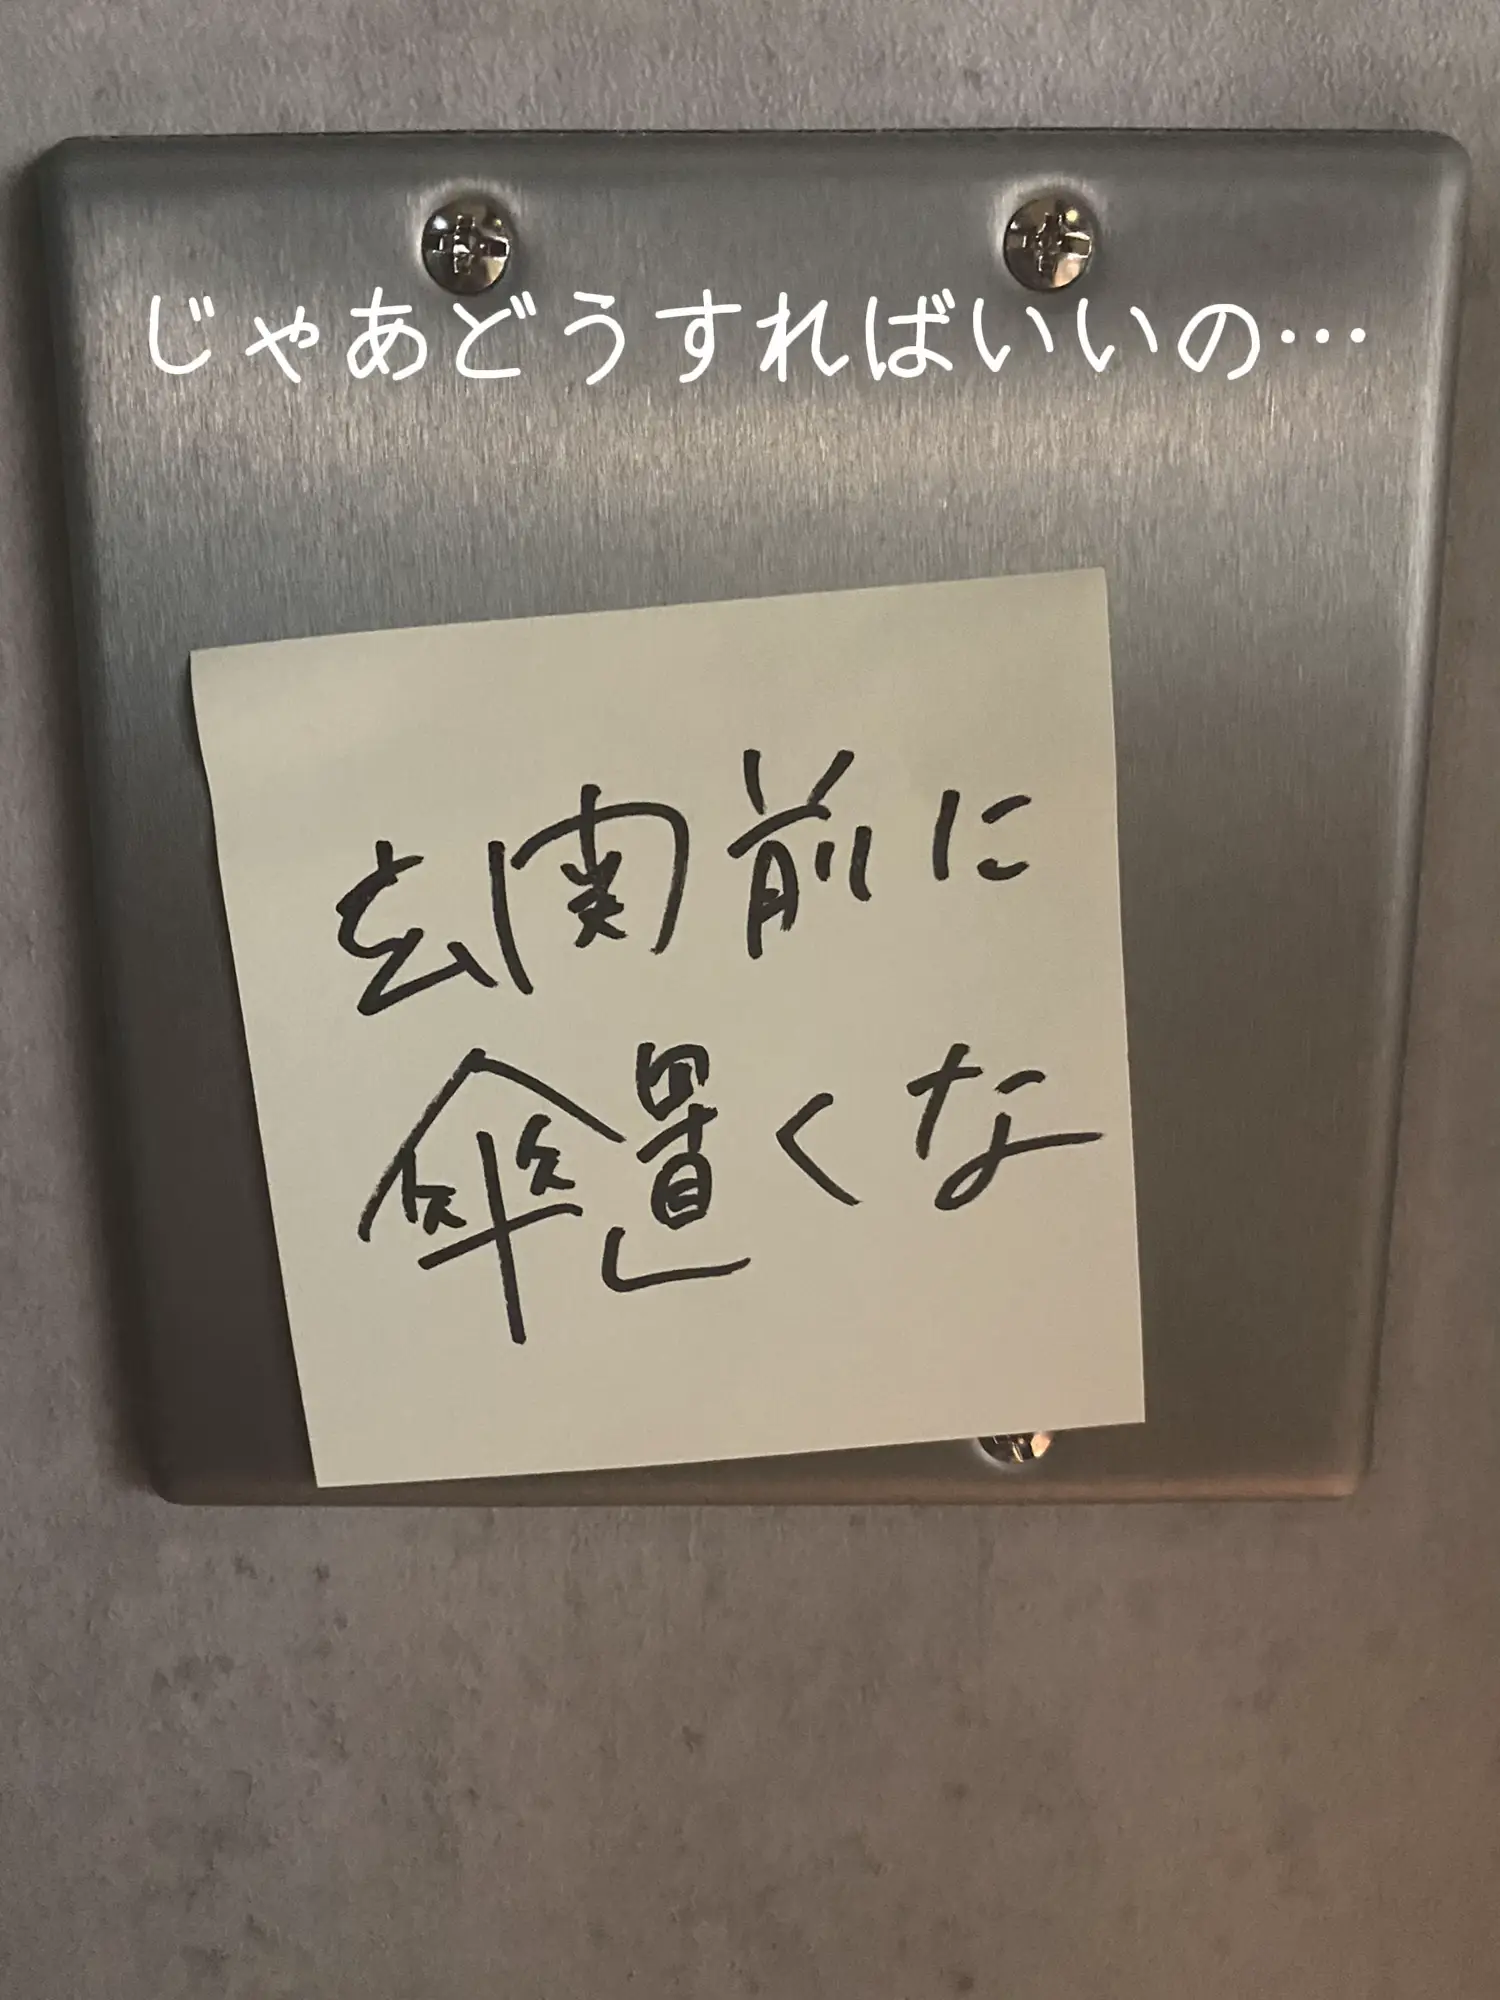 じゃあどうすればいいの…
玄関前に
傘置くな